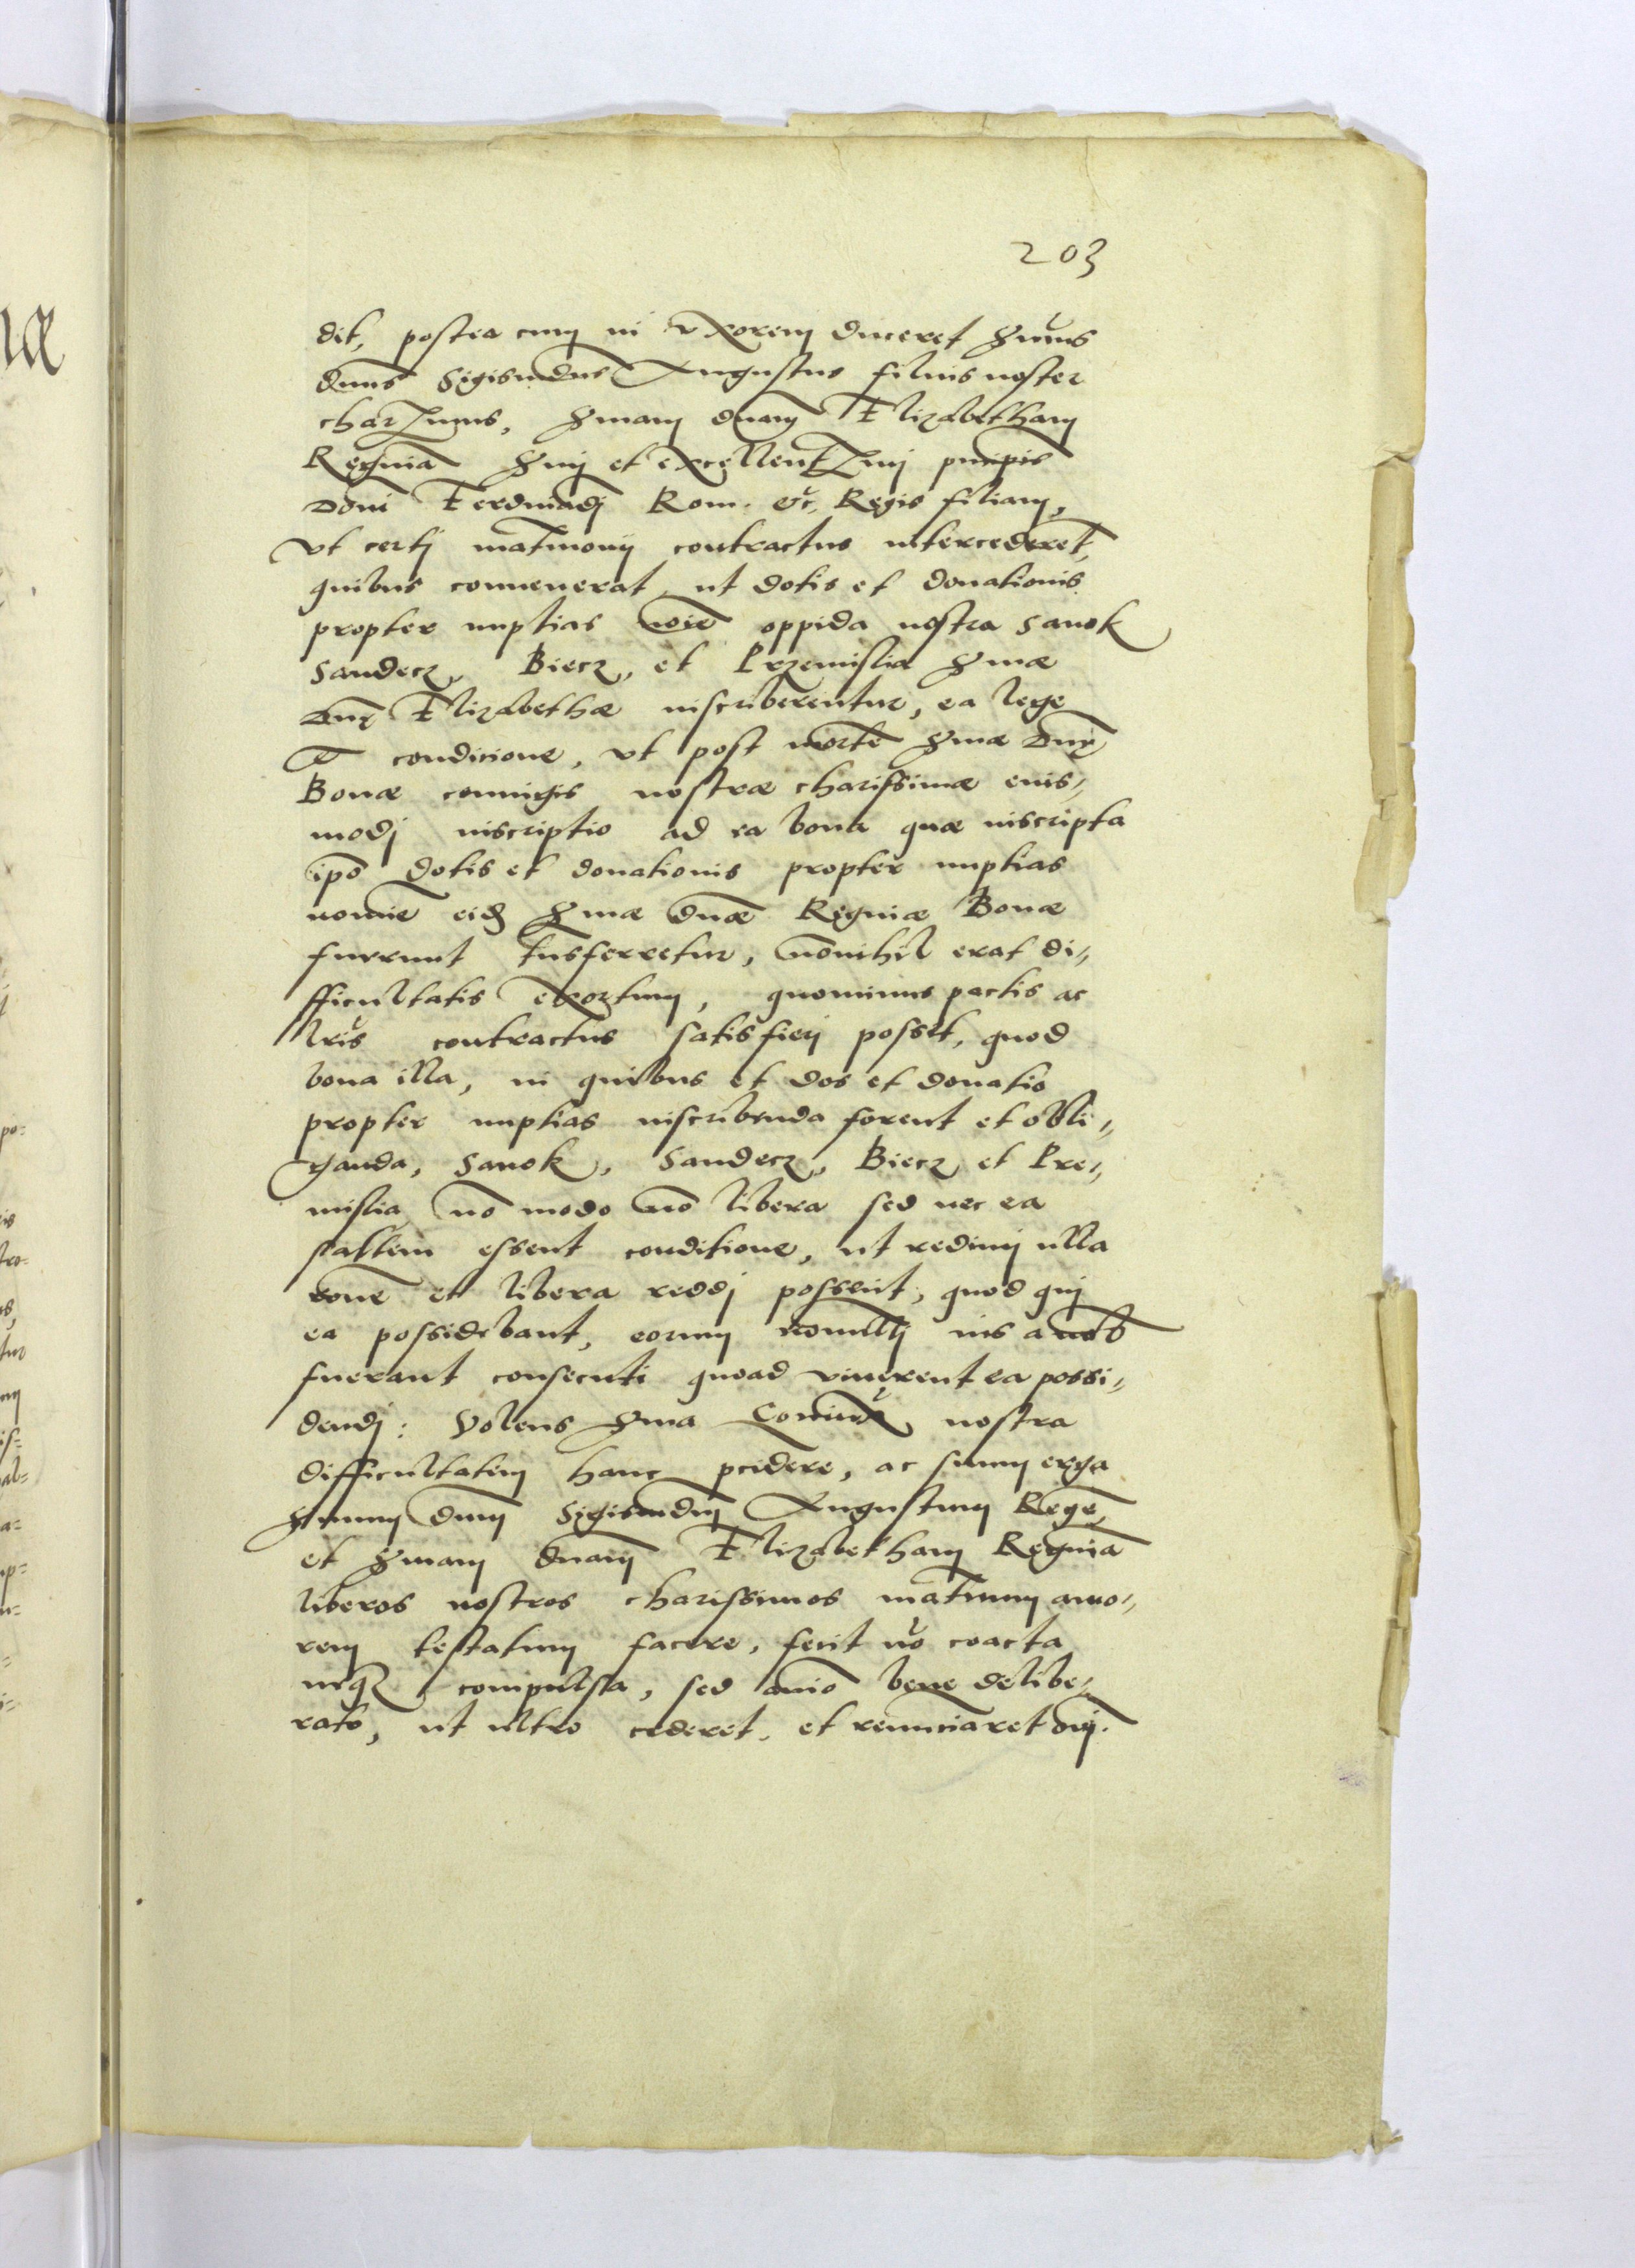 203
dit, postea cum in vxorem duceret Smus
dnus Sigismdus Augustus filius noster
charmus, Smam dnam Elizabetham
Reginā Smi et excellentmi prncipis
Ddni Ferdinādj Rom. &c, Regis filiam,
vt certj matrimonij contractus intercederet,
quibus conuenerat, ut dotis et donationis
propter nuptias noīe oppida nostra Sanok
Sandecz, Biecz, et Przemislia Smæ
Dnę Elizabethæ inscriberentur, ea lege
et conditione, vt post mortē Smæ Dnę
Bonæ coniugis nostræ charissimæ eius,,
modj inscriptio ad ea bona quæ inscripta
ipō dotis et donationis propter nuptias
nomīe eid Smæ dnæ Reginæ Bonæ
fuerunt trnsferretur, nōnihil erat di,,
fficultatis exortum, quominus pactis ac
lris contractus satisfierj posset, quod
bona illa, in quibus et dos et donatio
propter nuptias inscribenda forent et obli,,
ganda, Sanok, Sandecz, Biecz et Pre,,
mislia nō modo nō libera sed nec ea
saltem essent conditione, ut redimj ulla
rōne et libera reddj possent, quod quj
ea possidebant, eorum nonullj ius a nob
fuerant consecuti quoad viuerent ea possi,,
dendj: Volens Sma Coniunx nostra
difficultatem hanc pcidere, ac suum erga
Smum dnum Sigismdum Augustum Regē,
et Smam dnam Elizabetham Reginā
liberos nostros charissimos maternum amo,,
rem testatum facere, fecit nō coacta
neq compulsa, sed aīo bene delibe,,
rato, ut ultro cederet, et renunciaret oī.